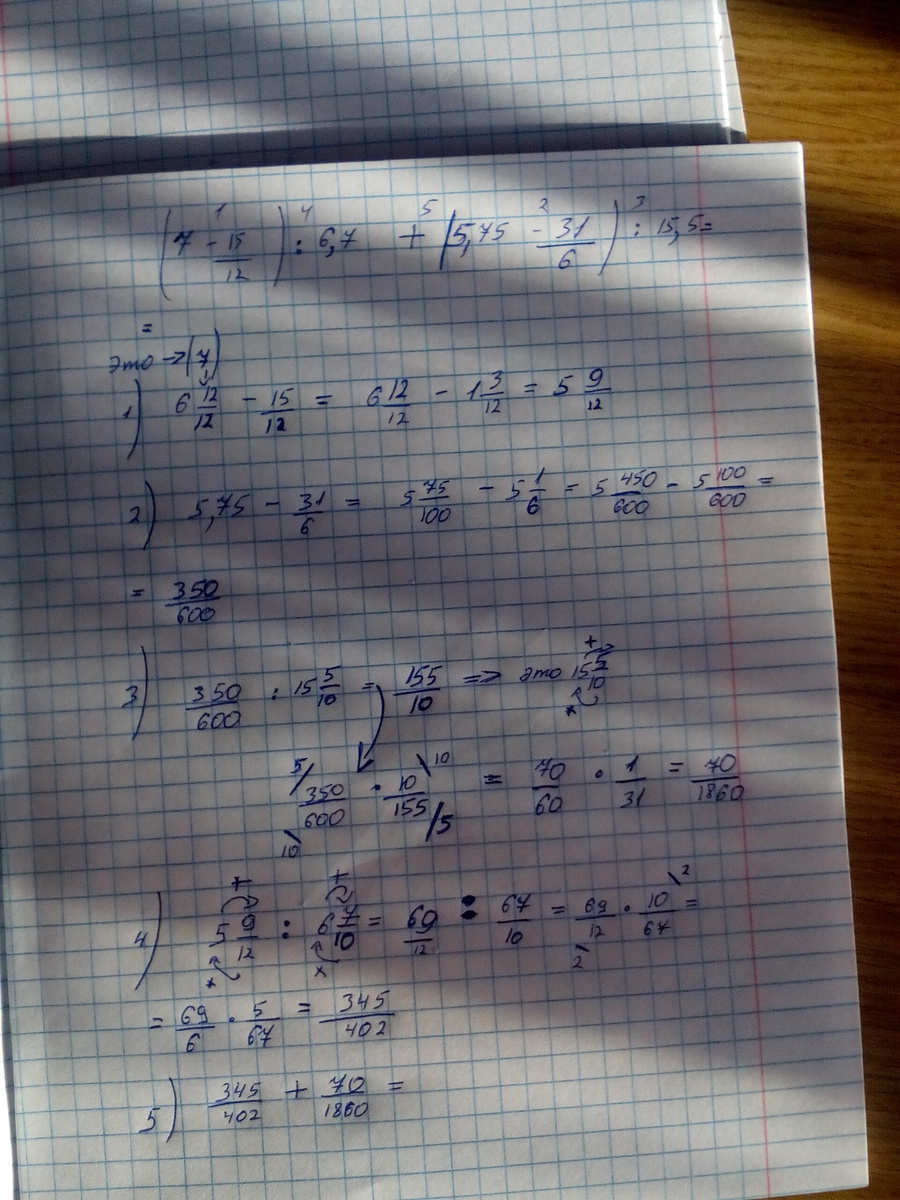 (7 - 15/12) : 6,7 + (5,75 - 31/6) : 15,5 =
1 4 5 2 3
=
Это -> (7)
1) 6 12/12 - 15/12 = 6 12/12 - 1 3/12 = 5 9/12
2) 5,75 - 31/6 = 5 75/100 - 5 1/6 = 5 450/600 - 5 100/600 =
= 350/600
3) 350/600 : 15 5/10 = 155/10 => это 15 5/10 + *
5/ 350/600 \10 · 10/155 \10 /5 = 70/60 · 1/31 = 70/1860
4) 5 9/12 + * : 6 7/10 + x = 69/12 : 67/10 = 69/12 \2 · 10/67 \2 =
= 69/6 · 5/67 = 345/402
5) 345/402 + 70/1860 =